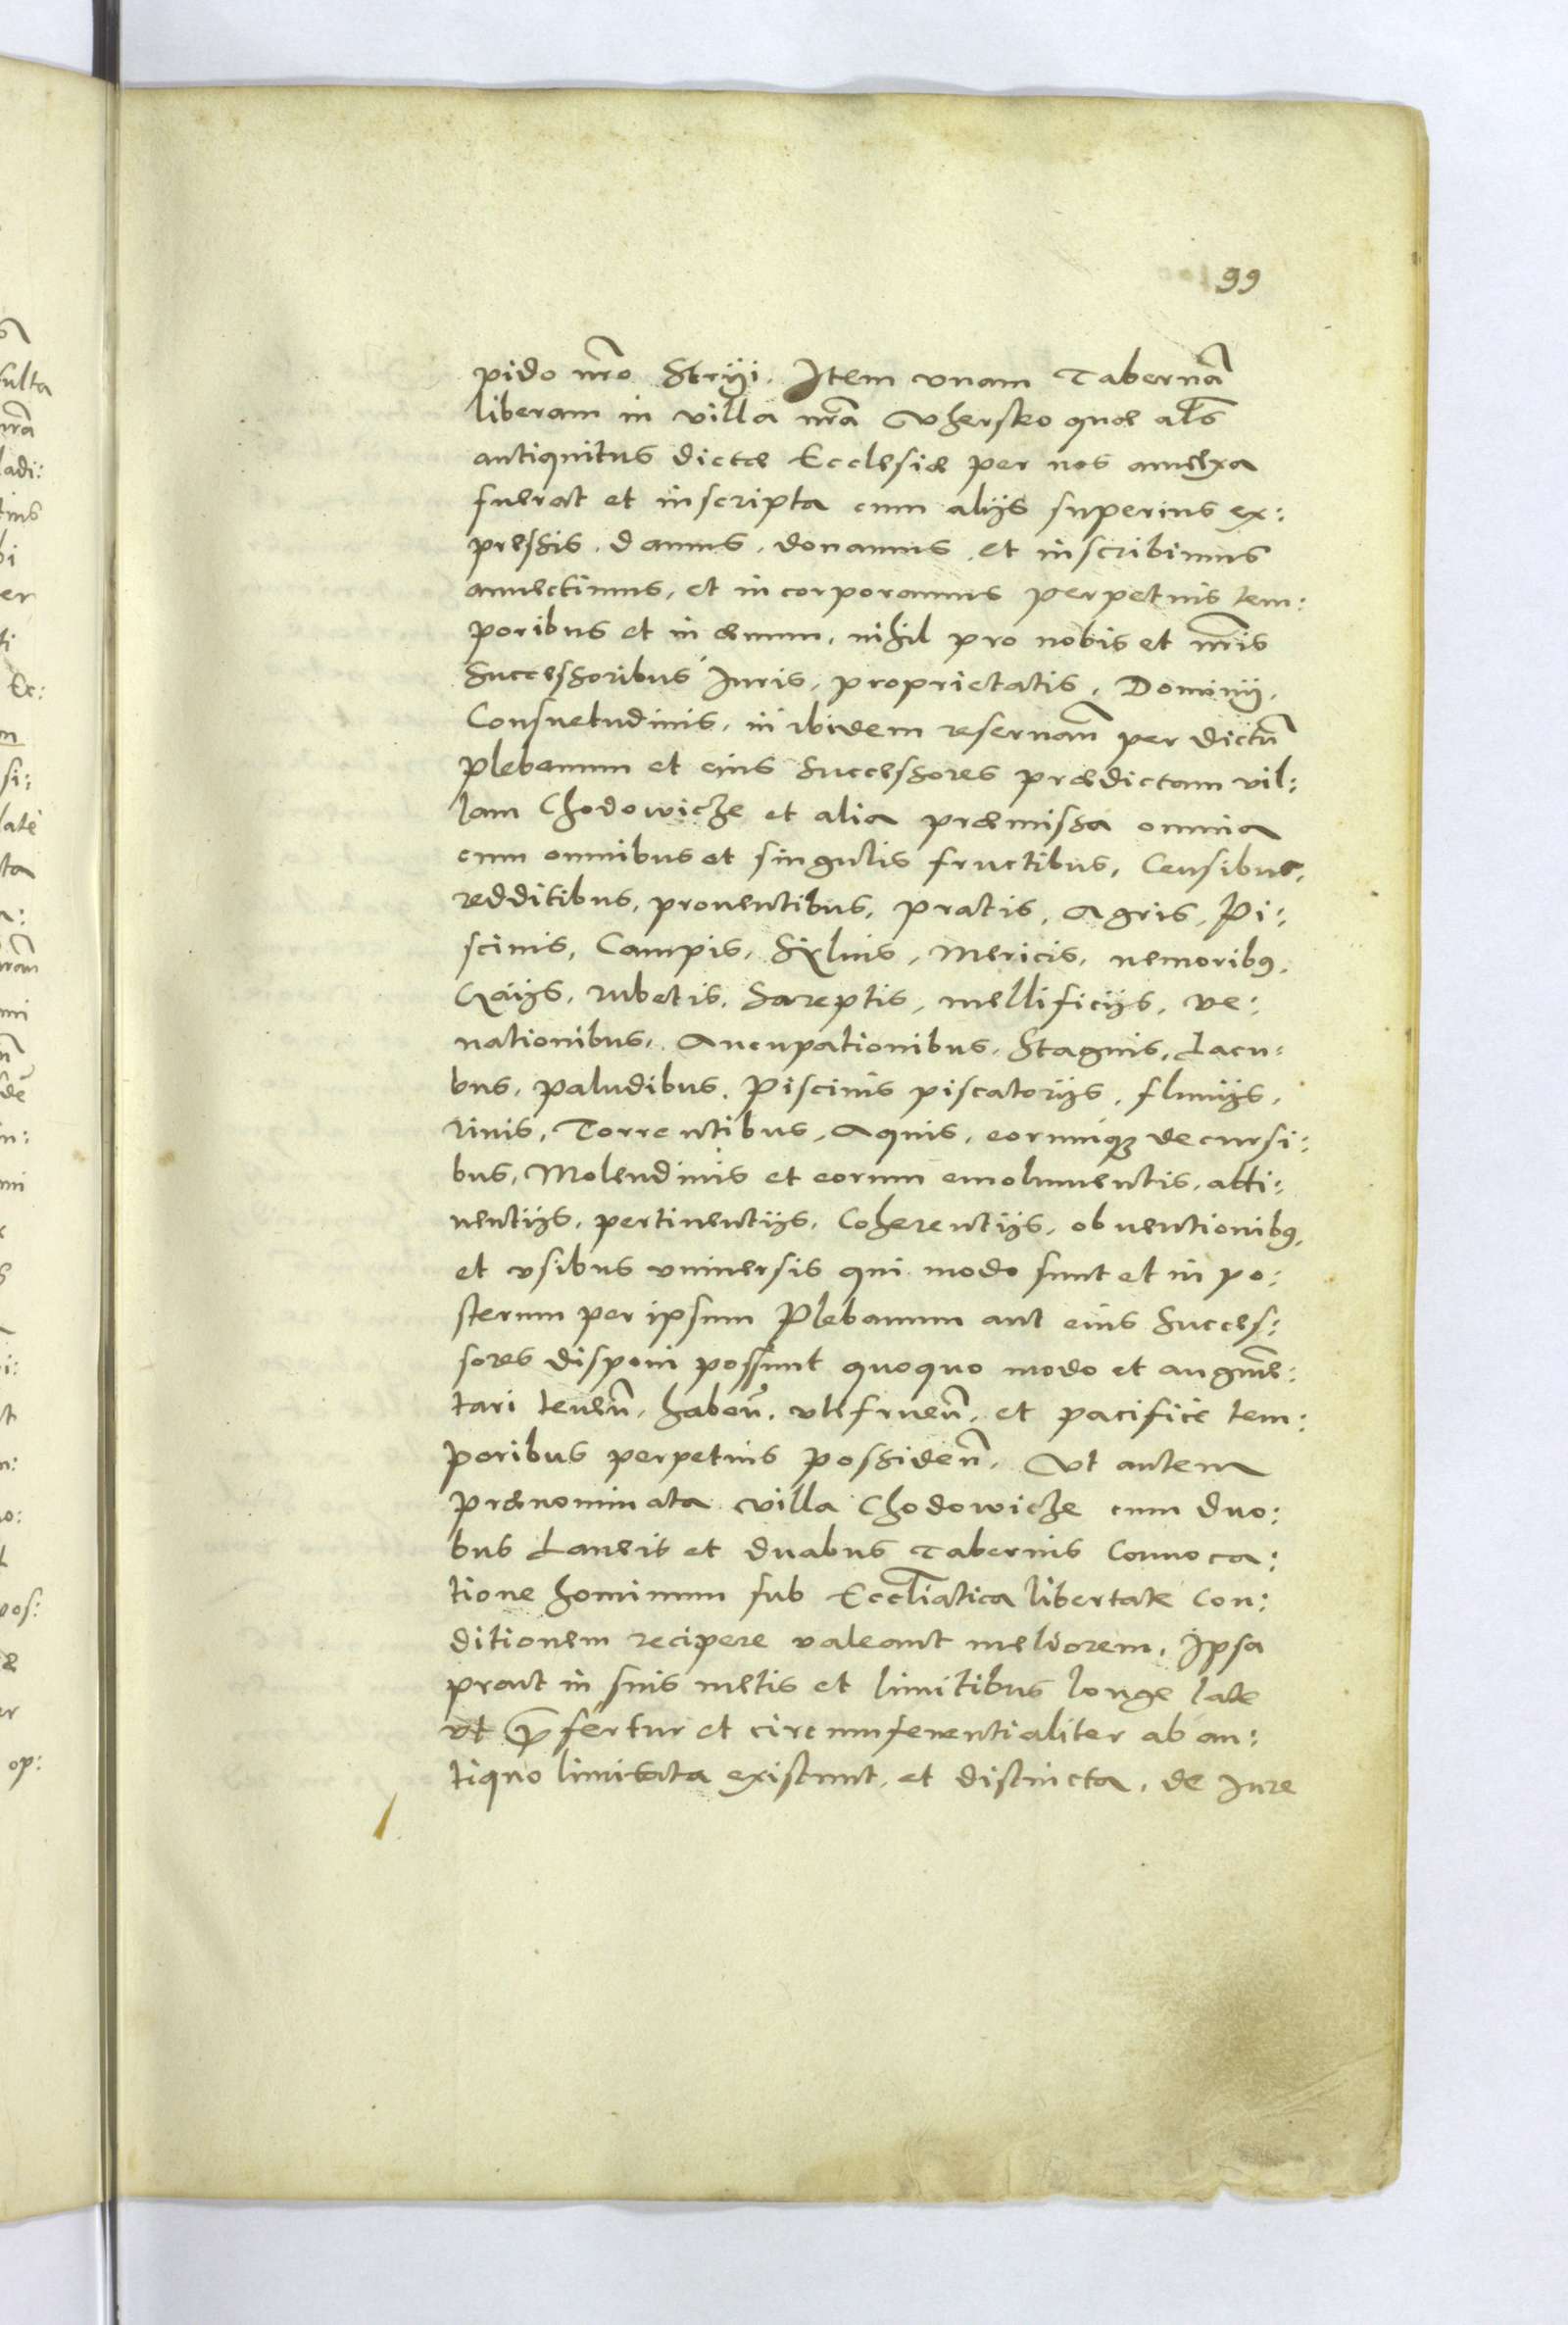 99
pido nr̃o Stryi. Item vnam Tabernã
liberam in villa nrã Vhersko quæ als̃
antiquitus dictæ Ecclesiæ per nos annexa
fuerat et inscripta cum alijs superius ex:
pressis. damus. donamus. et inscribimus
annectimus, et incorporamus perpetuis tem:
poribus et in æuum. nihil pro nobis et nr̃is
Successoribus Iuris, proprietatis, Dominij,
Consuetudinis, in ibidem reseruañ per dictũ
plebanum et eius Successores prædictam vil:
lam Chodowicze et alia præmissa omnia
cum omnibus et singulis fructibus, Censibus,
redditibus, prouentibus, pratis, Agris, Pi:
scinis, Campis, Syluis, Mericis, nemoribꝰ,
Gaijs, rubetis, Sareptis, mellificijs, ve:
nationibus, Aucupationibus, Stagnis, Lacu:
bus, paludibus, Piscinis piscatorijs, fluuijs,
riuis, Torrentibus, Aquis, eorumqꝫ decursi:
bus, Molendinis et eorum emolumentis, atti:
nentijs, pertinentijs, Coherentijs, obuentionibꝰ,
et vsibus vniuersis qui modo sunt et in po:
sterum per ipsum Plebanum aut eius Succes:
sores disponi possunt quoquo modo et augmẽ:
tari teneñ, habeñ, vtifrueñ, et pacificè tem:
poribus perpetuis possideñ. Vt autem
prænominata villa Chodowicze cum duo:
bus Laneis et duabus Tabernis Conuoca:
tione hominum sub Eccl̃iatica libertate Con:
ditionem recipere valeant meliorem, Ipsa
prout in suis metis et limitibus longe late
vt p̃fertur et circumferentialiter ab an:
tiquo limitata existunt, et distincta, de Iure